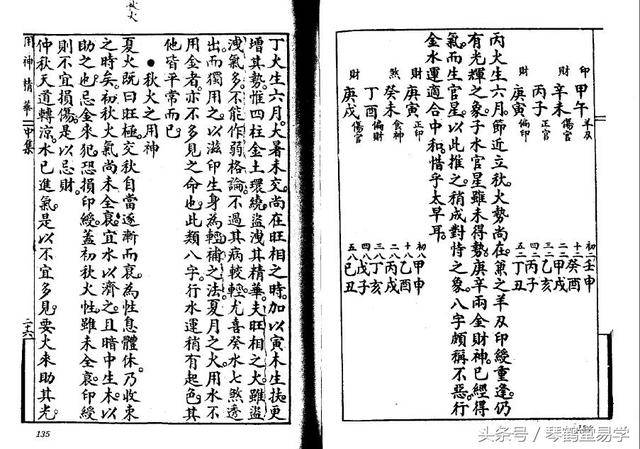 印 甲午 羊刃
財 辛未 傷官
丙子 正官
財 庚寅 偏印
初二壬申
十二癸酉
二二甲戌
三二乙亥
四二丙子
五二丁丑
丙火生六月。節近立秋。火勢尚在。兼之羊刃印綬重逢。仍
有光輝之象。子水官星雖未得勢。庚辛兩金財神已經得
氣而生官星。以此推之。稍成對待之象。八字頗稱不惡。行
金水運適合中和。惜乎太早耳。
財 庚寅 正印
煞 癸未 食神
丁酉 偏財
財 庚戌 傷官
初八甲申
十八乙酉
二八丙戌
三八丁亥
四八戊子
五八己丑
丁火生六月。大暑未交。尚在旺相之時。加以寅木生扶。更
增其勢。惟四柱金土環繞。盜洩其精華。夫旺相之火雖盜
洩氣多。不能作弱格論。不過其病較輕。尤喜癸水七煞透
出。而獨用之。以滋印生身為輔補之法。夏月之火用水不
用金者。亦不多見之命也。此類八字。行水運稍有起色。其
他皆平常而已。
●秋火之用神
夏火既曰旺極。交秋自當逐漸而衰。為性息體休。乃收束
之時矣。初秋火氣尚未全衰。宜水以濟之。且暗中生木。以
助之也。忌金來犯。恐損印綬。蓋初秋火性雖未全衰。印綬
則不宜損傷。是以忌財。
仲秋天道轉涼。水已進氣。是以不宜多見。要火來助其光。
用神精華 中集 二六
135
头条号 / 琴鹤堂易学